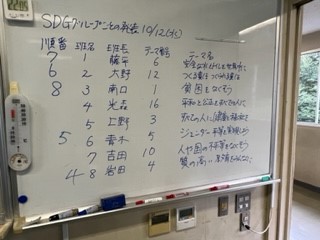 SDGグループごとの発表 10/12(水)
順番 班名 班長 テーマ番号 テーマ名
7 1 藤平 6 安全な水とトイレを世界中に
6 2 大野 12 つくる責任 つかう責任
8 3 南口 1 貧困をなくそう
4 光森 16 平和と公正をすべての人に
5 上野 3 すべての人に健康と福祉を
5 6 青木 5 ジェンダー平等を実現しよう
7 吉田 10 人や国の不平等をなくそう
4 8 岩田 4 質の高い